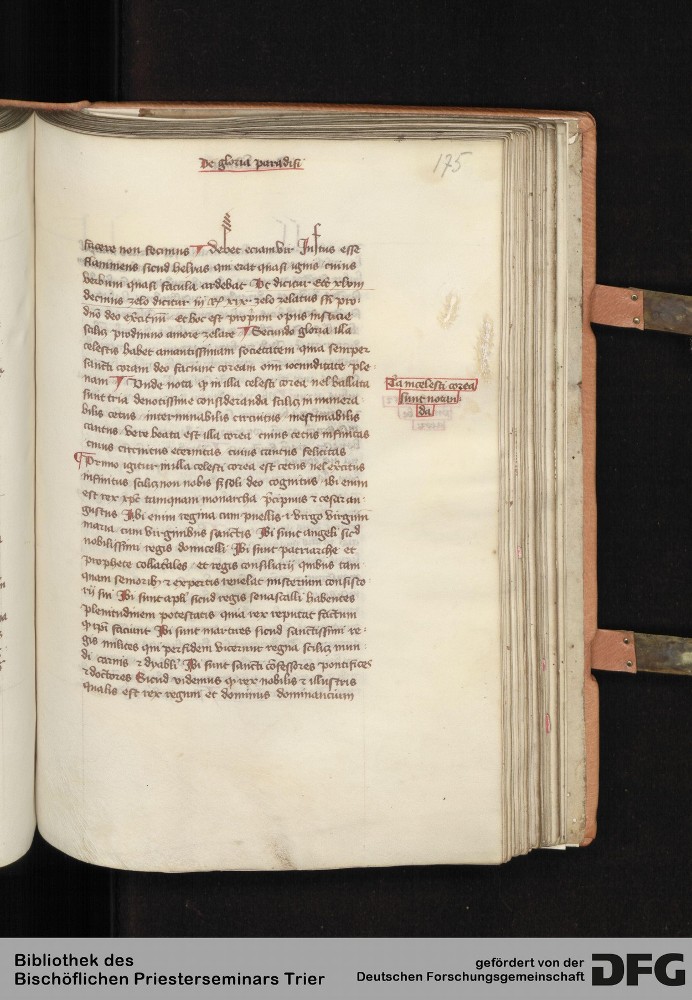 De gloria paradisi
175
facere non secimus Debet eciam vir Iustus esse
flammeus sicud helyas qui erat quasi ignis cuius
verbum quasi facula ardebat Ut dicitur xlviii
decimus zelo dicitur iii xix zelo zelatus sum pro
dno deo et hoc est proprium opus iusticie
scilicet amore zelare Secundo gloria illa
celestis habet amantissimam societatem quia semper
sancti coram deo faciunt coream omni iocunditate ple
nam Unde nota qd in illa celesti corea vel ballata
sunt tria deuotissime consideranda scilicet innumera
bilis cetus interminabilis circuitus inestimabilis
cantus vere beata est illa corea cuius cetus infinitas
cuius circuitus eternitas cuius cantus felicitas
Primo igitur in illa celesti corea est cetus vel exercitus
infinitus scilicet non nobis sed soli deo cognitus ibi enim
est rex xpc tamquam monarcha precipuus et cesar au
gustus Ibi enim regina cum puellis i virgo virginum
maria cum virginibus sanctis Ibi sunt angeli sicud
nobilissimi regis domicelli Ibi sunt patriarche et
prophete collaterales et regis consiliarii quibus tam
quam senioribus et expertis reuelat misterium consisto
rii sui Ibi sunt apli sicud regis senascalli habentes
plenitudinem potestatis quia rex reputat factum
qd ipsi faciunt Ibi sunt martires sicud sanctissimi re
gis milites qui per fidem vicerunt regna scilicet mun
di carnis et dyaboli Ibi sunt sancti confessores pontifices
et doctores Sicud videmus qd rex nobilis et illustris
qualis est rex regum et dominus dominancium
celesti corea
sunt notan
da
Bibliothek des
Bischöflichen Priesterseminars Trier
gefördert von der
Deutschen Forschungsgemeinschaft
DFG